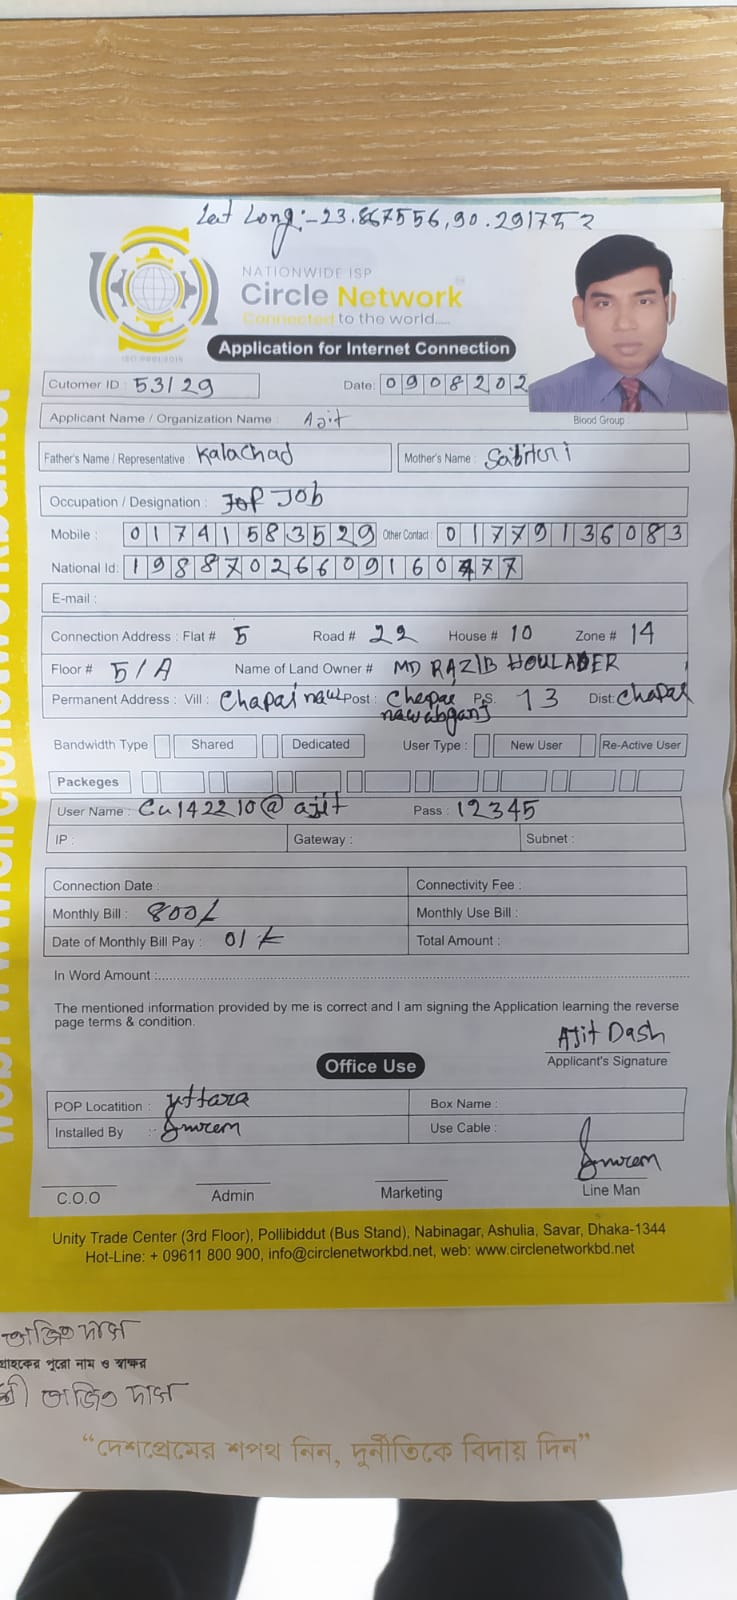 Let Long:-23.867556,90.291753
NATIONWIDE ISP
Circle Network
Connected to the world.....
ISO 9001:2015
Application for Internet Connection
Cutomer ID : 53129 Date: 0908202
Applicant Name / Organization Name : Ajit Blood Group
Father's Name / Representative : Kalachad Mother's Name : Sabitri
Occupation / Designation : Job
Mobile : 01741583529 Other Contact : 01779136083
National Id: 19887026609160477
E-mail :
Connection Address : Flat # 5 Road # 22 House # 10 Zone # 14
Floor # 5/A Name of Land Owner # MD RAZIB HOULADER
Permanent Address : Vill : Chapai naw Post : Chapai nawabganj P.S. 13 Dist: Chapai
Bandwidth Type Shared Dedicated User Type : New User Re-Active User
Packeges
User Name : Cu142210@ajit Pass : 12345
IP : Gateway : Subnet :
Connection Date : Connectivity Fee :
Monthly Bill : 800/ Monthly Use Bill :
Date of Monthly Bill Pay : 01 Total Amount :
In Word Amount :
The mentioned information provided by me is correct and I am signing the Application learning the reverse
page terms & condition.
Ajit Dash
Applicant's Signature
Office Use
POP Locatition : Uttara Box Name :
Installed By : Use Cable :
C.O.O Admin Marketing Line Man
Unity Trade Center (3rd Floor), Pollibiddut (Bus Stand), Nabinagar, Ashulia, Savar, Dhaka-1344
Hot-Line: + 09611 800 900, info@circlenetworkbd.net, web: www.circlenetworkbd.net
অজিত দাস
গ্রাহকের পুরো নাম ও স্বাক্ষর
শ্রী অজিত দাস
“দেশপ্রেমের শপথ নিন, দুর্নীতিকে বিদায় দিন”